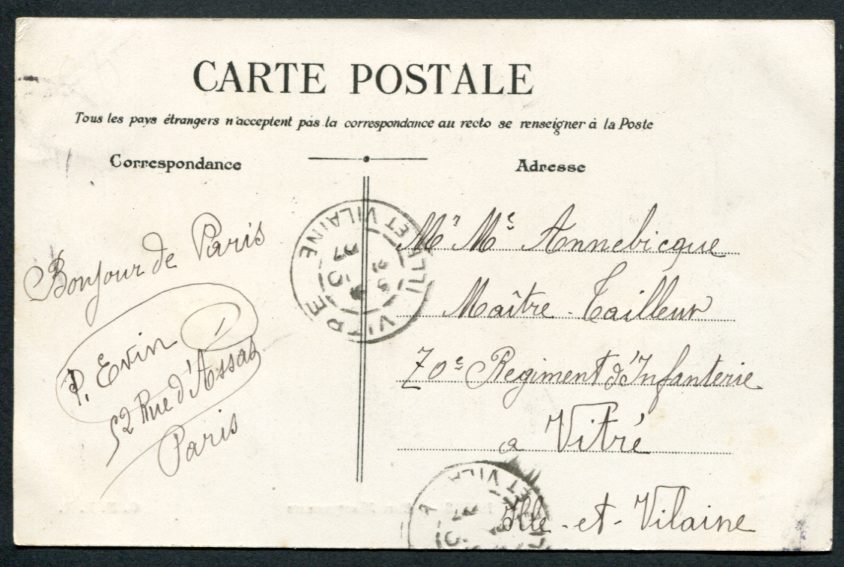 CARTE POSTALE
Tous les pays étrangers n'acceptent pas la correspondance au recto se renseigner à la Poste
Correspondance
Adresse
Bonjour de Paris
P. Evin
52 Rue d'Assas
Paris
VITRE
ILLE ET VILAINE
Mr Me Annebicque
Maître-Tailleur
70e Regiment d'Infanterie
a Vitré
Ille-et-Vilaine
ET VILA